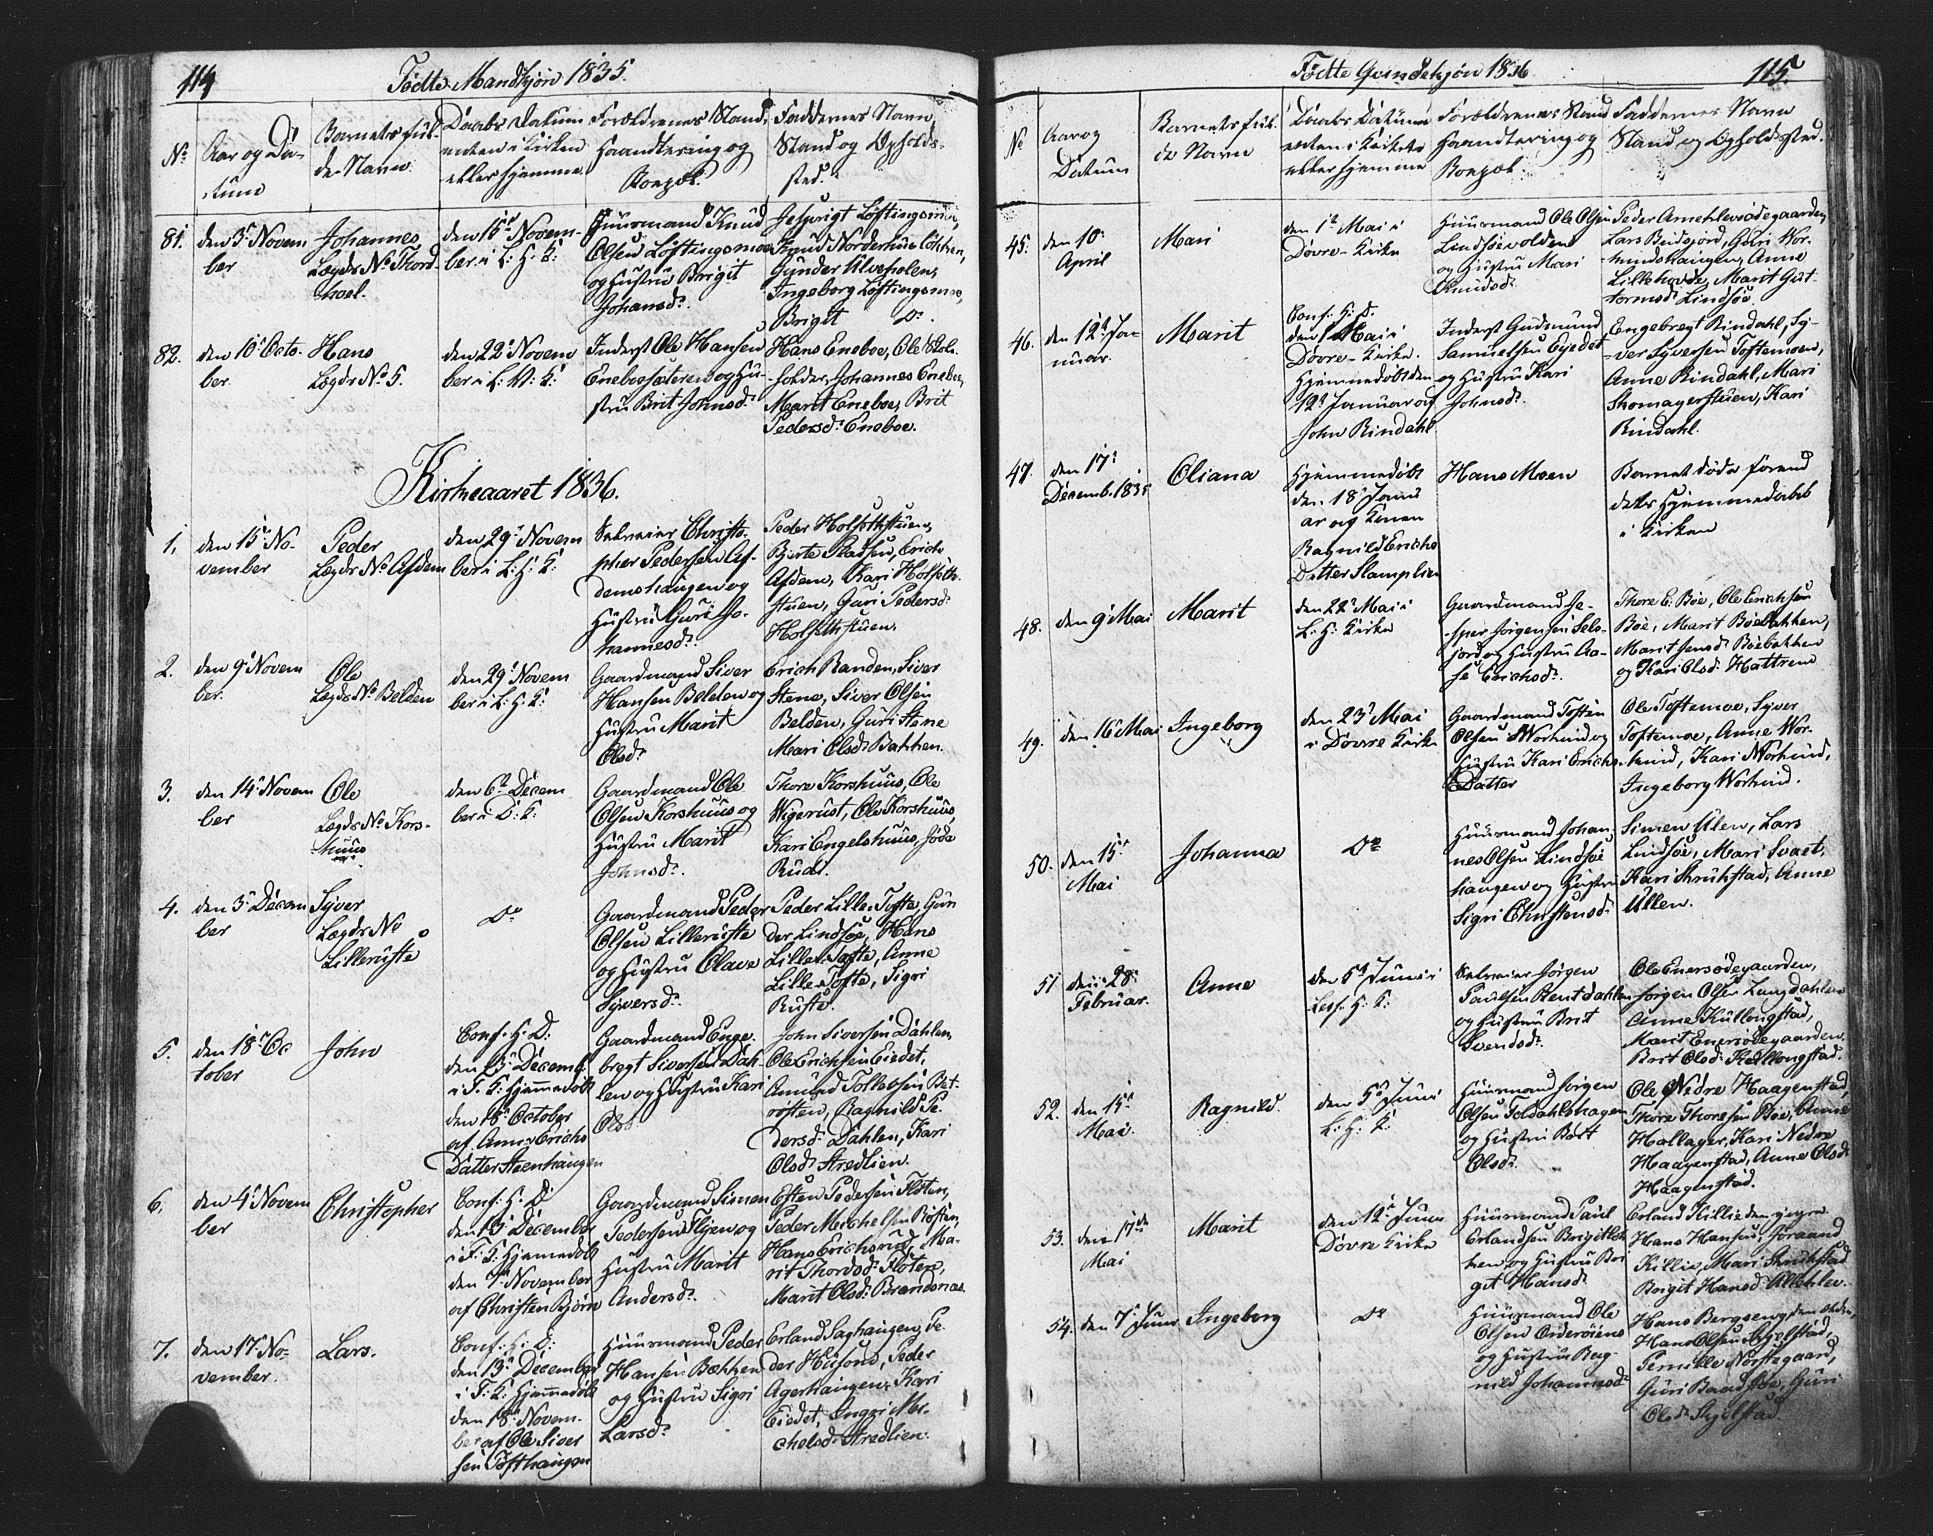 114
Födte Mandkjön 1835.
No
Aar og Da-
tum
Barnets ful-
de Navn.
Daabs Datum
enten i Kirken
eller hjemme
Forældrenes Stand,
Haandtering og
Boepæl.
Faddernes Navn,
Stand og Opholds-
sted.
81.
den 3' Novem
ber
Johannes
Lægds No Thord
hoel.
den 15' Novem-
ber i L: H: K:
Huusmand Knud
Olsen Löftingsmoe
og Hustru Brigit
Johansd:
Löftingsmoe,
Knud Nordemoe Löhhen,
Gunder Ulveholen,
Ingeborg Löftingsmoe,
Brigit Do.
82.
den 10' Octo-
ber.
Hans
Lægds No 5.
den 22' Novem
ber i L: H: K:
Inderst Ole Hansen
Eneboesæteren og Hu-
stru Brit Johnsd:
Hans Eneboe, Ole Skol-
holder, Johannes Eneboe,
Marit Eneboe, Brit
Pedersd: Eneboe.
Kirkeaaret 1836.
1.
den 15' No-
vember
Peder
Lægds No Afdem
den 29' Novem
ber i L: H: K:
Selveier Christo-
pher Pedersen Af-
demshaugen og
Hustru Guri Jo-
hannesd:
Peder Holsethstuen,
Bjerte Stadsen, Erich
Afdem, Kari Holseth-
stuen, Guri Pedersd:
Holsethstuen.
2.
den 9' Novem
ber.
Ole
Lægds No Belden
den 29' Novem
ber i L: H: K:
Gaardmand Siver
Hansen Belden og
Hustru Marit
Olsd:
Erich Randen, Siver
Stene, Siver Olsen
Belden, Guri Stene
Mari Olsd: Bakken.
3.
den 14' Novem
ber
Ole
Lægds No Kors-
huus
den 6' Decem
ber i D: K:
Gaardmand Ole
Olsen Korshuus og
Hustru Marit
Johnsd:
Thore Korshuus, Ole
Wigerust, Ole Korshuus,
Kari Engelshuus, Jöda
Ruda.
4.
den 3' Decem
ber
Syver
Lægds No
Lilleruste
Do
Gaardmand Peder
Olsen Lilleruste
og Hustru Olave
Syversd:
Peder Lille-Tofte, Gun
der Lindsöe, Hans
Lille-Tofte, Anne
Lille-Tofte, Sigri
Ruste.
5.
den 18' Oc
tober
John
Conf: H: D:
den 13' Decemb.
i L: K: Hjemmedöbt
den 18' October
af Anne Erichs
Datter Steenhaugen
Gaardmand Enge-
bregt Siversen Dah-
len og Hustru Kari
Olsd:
John Siversen Dahlen,
Ole Erichsen Eiedet,
Amund Tollevsen Bat-
röften, Ragnild Pe-
dersd: Dahlen, Kari
Olsd: Stredlien.
6.
den 4' Novem
ber
Christopher
Conf: H: D:
den 13' December
i L: K: Hjemmedöbt
den 7' November
af Christen Björn
Gaardmand Simen
Pedersen Flyen og
Hustru Marit
Andersd:
Esten Pedersen Floten,
Peder Michelsen Rösten,
Hans Erichsrud, Ma-
rit Thordsd: Floten,
Marit Olsd: Brandsnæs.
7.
den 17' No-
vember.
Lars.
Conf: H: D:
den 13' December
i L: K: Hjemmedöbt
den 18' Novem-
ber af Ole Siver
sen Tofthaugen
Huusmand Peder
Hansen Bækken
og Hustru Sigri
Larsd:
Erland Saghaugen, Pe-
der Husond, Peder
Agerhaugen, Kari
Eiedet, Ingri Mi-
chelsd: Stredlien.
115.
Födte Qvindekjön 1836
No
Aar og
Datum
Barnets ful-
de Navn
Daabs Datum
enten i Kirken
eller hjemme
Forældrenes Stand
Haandtering og
Boepæl.
Faddernes Navn
Stand og Opholdssted.
45.
den 10'
April
Mari
den 1' Mai i
Dovre-Kirke
Huusmand Ole Olsen
Lindsöevolden
og Hustru Mari
Knudsd:
Peder Ödegaarden,
Lars Guri Wor-
kinshaugen, Anne
Lillehovde, Marit Gut-
tormsd: Lindsöe.
46.
den 12' Ja-
nuar.
Marit
Conf: H: D.
den 1' Mai i
Dovre-Kirke.
Hjemmedöbt den
12' Januar af
John Rindahl
Inderst Gudmund
Samuelsen Eiedet
og Hustru Kari
Johnsd:
Engebregt Rindahl, Sy-
ver Syversen Toftemoen,
Anne Rindahl, Mari
Skomagerstuen, Kari
Rindahl.
47.
den 17'
Decemb. 1835
Oliana
Hjemmedöbt
den 18' Janu
ar af Konen
Ragnild Erichs
Datter Slamplien
Hans Moen
Barnet döde forend
dets Hjemmedaab
i Kirken
48.
den 9' Mai
Marit
den 22' Mai i
L: H: Kirke
Gaardmand Je-
sper Jörgensen Sels-
jord og Hustru Aa-
se Erichsd:
Thore E. Böe, Ole Erichsen
Böe, Marit Böebakken,
Marit Jensd: Böebakken
og Kari Olsd: Hattrem
49.
den 16' Mai
Ingeborg
den 23' Mai
i Dovre Kirke
Gaardmand Tosten
Olsen Workind og
Hustru Kari Erichs
Datter
Ole Toftemoe, Syver
Toftemoe, Anne Wor-
kind, Kari Workind,
Ingeborg Workind.
50.
den 15'
Mai
Johanna
Do
Huusmand Johan
nes Olsen Lindsöe
haugen og Hustru
Sigri Christensd:
Simen Ulen, Lars
Lindsöe, Mari Svaet,
Kari Skruhstad, Anne
Ullen.
51
den 28'
Februar.
Anne
den 5' Juni i
Lesj. H: K:
Selveier Jörgen
Paulsen Bentdahlen
og Hustru Brit
Svendsd:
Ole Enersödegaarden,
Jörgen Olsen Langdahlen
Anne Killongstad,
Marit Enersödegaarden
Brit Olsd: Killongstad.
52.
den 15'
Mai.
Ragnild.
den 5' Juni
L: H: K:
Huusmand Jörgen
Olsen Toldahlshagen
og Hustru Brit
Olsd:
Ole Nedre Haagenstad,
Thore Thoresen Böe, Anne
Hallager, Kari Nedre
Haagenstad, Anne Olsd:
Haagenstad.
53.
den 17de
Mai
Marit
den 12' Juni
Dovre Kirke
Huusmand Paul
Erlandsen Brigitlök
ken og Hustru Bri
git Hansd:
Erland Killie den yngre
Hans Hansen, Joraand
Killie, Mari Skruhstad
Brigit Hansd: Ullekleiv.
54.
den 7' Juni
Ingeborg
Do
Huusmand Ole
Olsen
og Hustru Rag-
nild Johannesd:
Hans Bergseng den eldre,
Hans Olsen Skjelstad,
Pernille Norstegaard,
Guri Baadstöe, Guri
Olsd: Skjelstad.